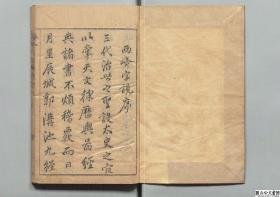 西齋字說序
三代治世之聖設太史之官
以掌天文律曆與圖經
典諸書不煩稽覈而日
月星辰城郭溝池九經